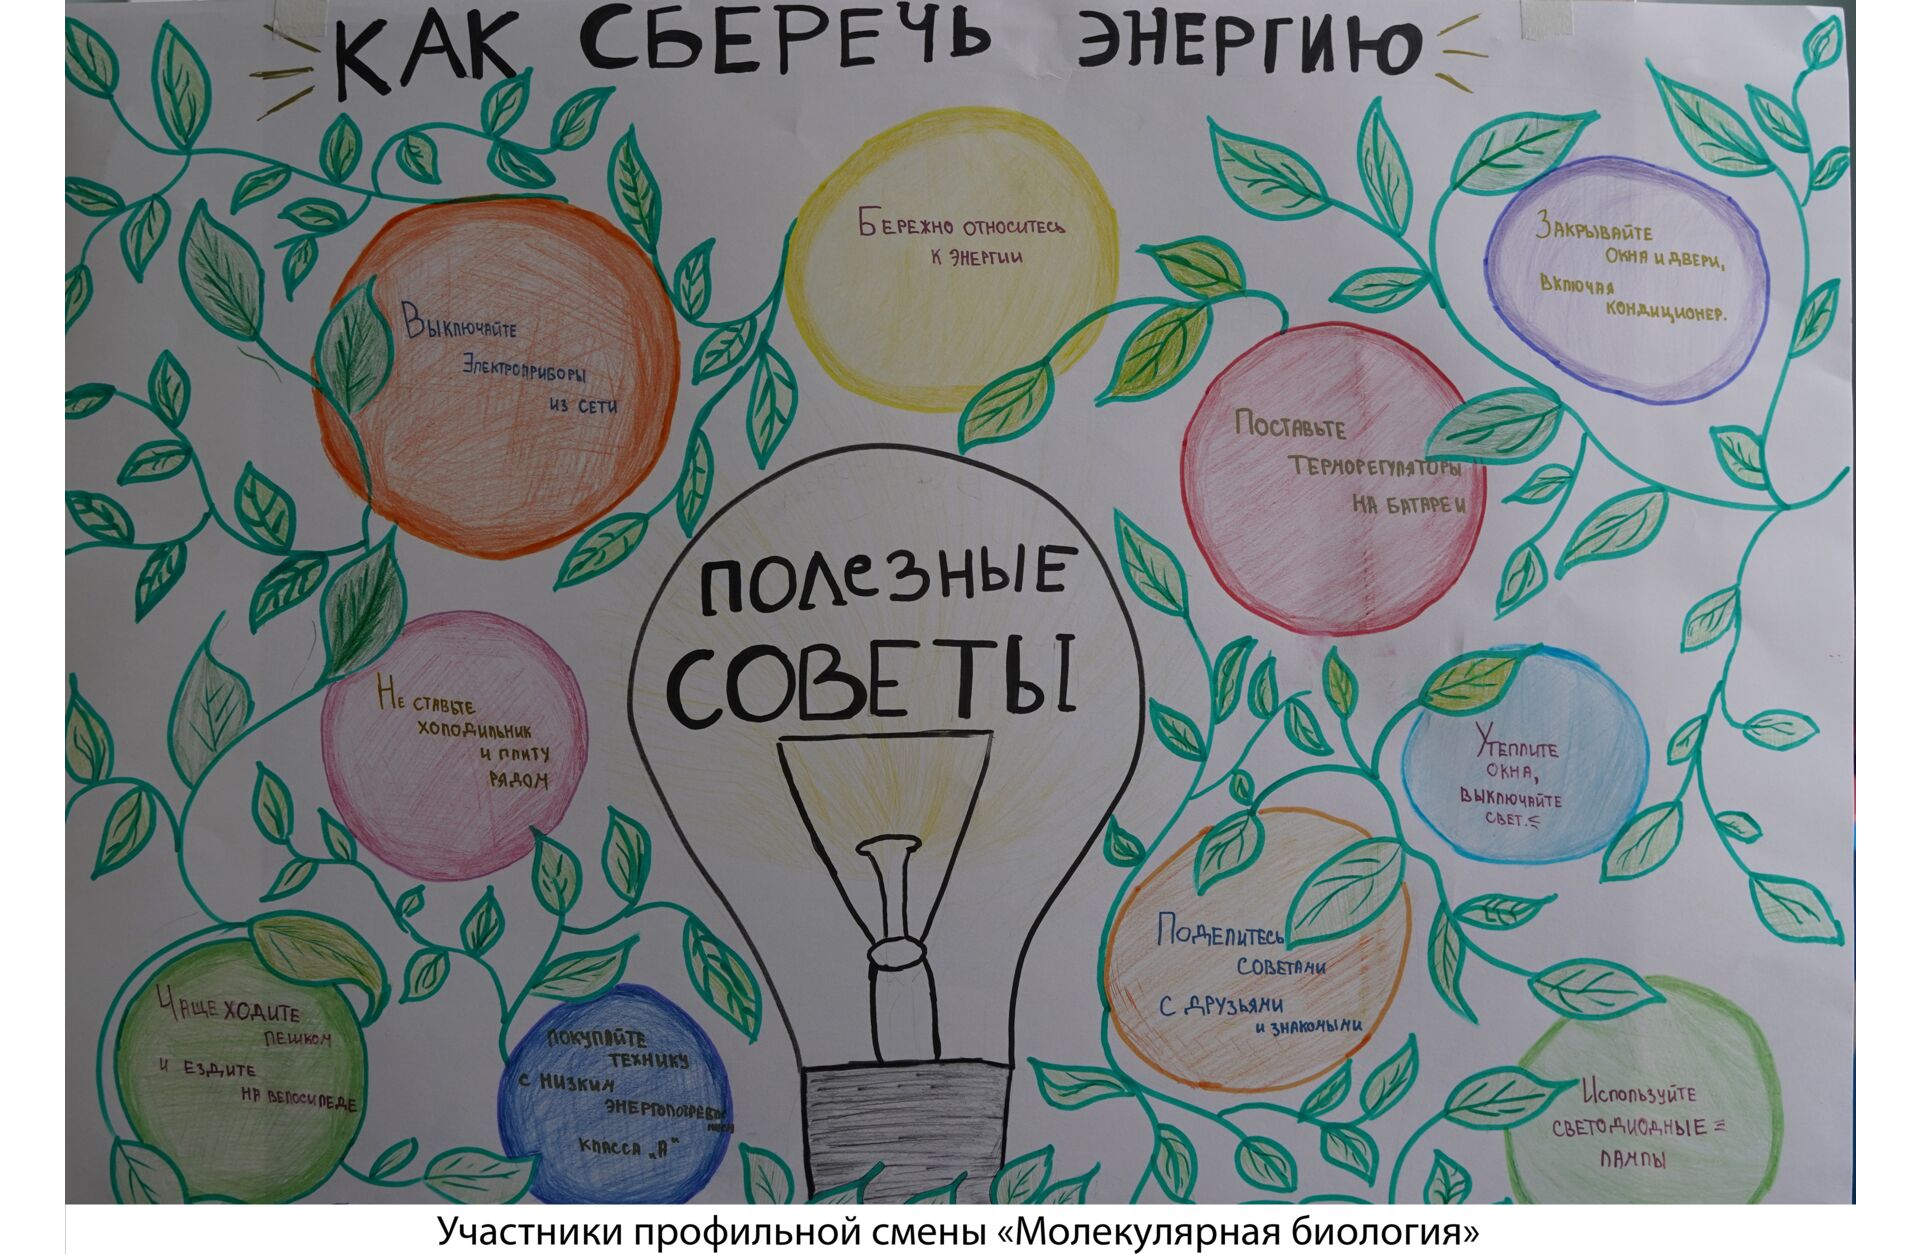 КАК СБЕРЕЧЬ ЭНЕРГИЮ
Бережно относитесь
к энергии
Закрывайте
окна и двери,
включая
кондиционер.
Выключайте
электроприборы
из сети
Поставьте
терморегуляторы
на батареи
ПОЛЕЗНЫЕ
СОВЕТЫ
Не ставьте
холодильник
и плиту
рядом
Утеплите
окна,
выключайте
свет.
Поделитесь
советами
с друзьями
и знакомыми
Чаще ходите
пешком
и ездите
на велосипеде
Покупайте
технику
с низким
класса „А"
Используйте
светодиодные
лампы
Участники профильной смены «Молекулярная биология»